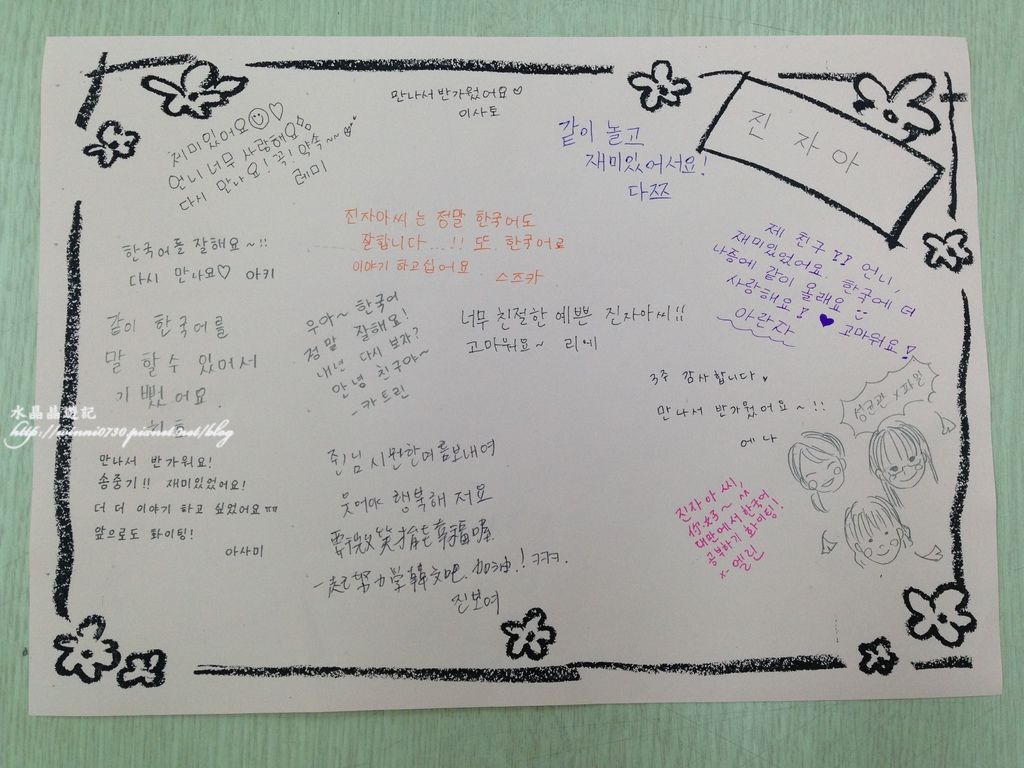 만나서 반가웠어요♡
이사토
진 자 아
제미있어요☺♡
언니 너무 사랑해요
다시 만나요! 꼭! 약속~~
레미
같이 놀고
재미있어서요!
다쯔
진자아씨 는 정말 한국어도
잘합니다...!! 또 한국어로
이야기 하고십어요
스즈카
한국어를 잘해요~!!
다시 만나요♡ 아키
제 친구!! 언니,
재미있었어요. 한국에 더
나중에 같이 올래요
사랑해요! ♥ 고마워요!
아란자
같이 한국어를
말 할 수 있어서
기뻤어요
우아~ 한국어
정말 잘해요!
내년 다시 보자?
안녕 친구야~
-카트린
너무 친절한 예쁜 진자아씨!!
고마워요~ 리에
3주 감사합니다
만나서 반가웠어요~!!
에나
성균관 x 파일
水晶晶遊記
http://winni0730.pixnet.net/blog
만나서 반가워요!
송중기!! 재미있었어요!
더 더 이야기 하고 싶었어요ㅠㅠ
앞으로도 화이팅!
아사미
웃어야 행복해 저요
要微笑才能幸福喔
一起努力學韓文吧. 加油!ㅋㅋㅋ.
진보여
진자아 씨,
你好~ ^^
대만에서 한국어
공부하기 화이팅!
x- 엘린